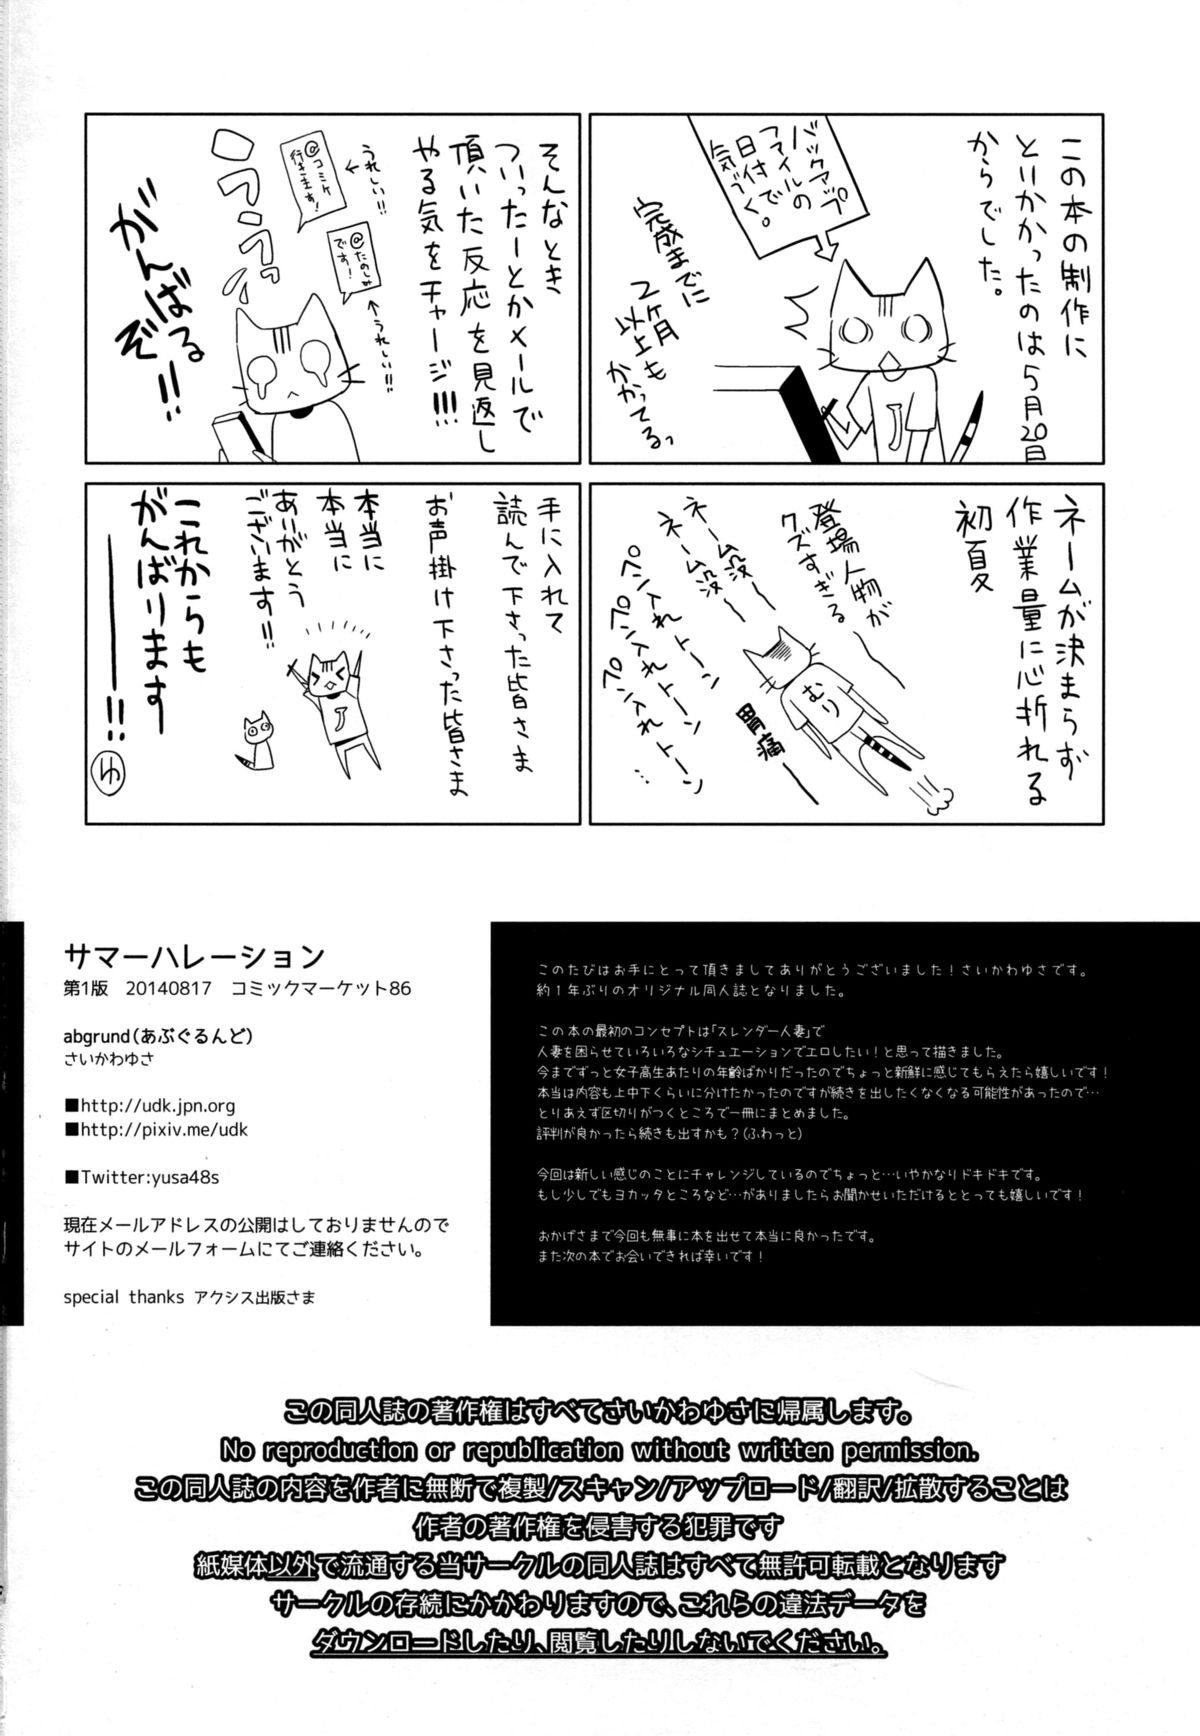 この本の制作に
とりかかったのは5月20日
からでした。
バックアップ
ファイルの
日付で
気づく。
完成までに
2ヶ月
以上も
かかってるっ
そんなとき
ついったーとかメールで
頂いた反応を見返し
やる気をチャージ!!!
うれしい!!
@コミケ
行きます!
@たのしみ
です!
うれしい!!
がんばる
ぞ!!
ネームが決まらず
作業量に心折れる
初夏
登場人物が
クズすぎるー
ネーム没ー
ネーム没ー
ペン入れトーン
ペン入れトーン
ペン入れトーン
むり
胃痛ー
手に入れて
読んで下さった皆さま
お声掛け下さった皆さま
本当に
本当に
ありがとう
ございます!!
これからも
がんばります
――!!
ゆ
サマーハレーション
第1版 20140817 コミックマーケット86
abgrund(あぶぐるんど)
さいかわゆさ
■http://udk.jpn.org
■http://pixiv.me/udk
■Twitter:yusa48s
現在メールアドレスの公開はしておりませんので
サイトのメールフォームにてご連絡ください。
special thanks アクシス出版さま
このたびはお手にとって頂きましてありがとうございました!さいかわゆさです。
約1年ぶりのオリジナル同人誌となりました。
この本の最初のコンセプトは「スレンダー人妻」で
人妻を困らせていろいろなシチュエーションでエロしたい!と思って描きました。
今までずっと女子高生あたりの年齢ばかりだったのでちょっと新鮮に感じてもらえたら嬉しいです!
本当は内容も上中下くらいに分けたかったのですが続きを出したくなくなる可能性があったので…
とりあえず区切りがつくところで一冊にまとめました。
評判が良かったら続きも出すかも?(ふわっと)
今回は新しい感じのことにチャレンジしているのでちょっと…いやかなりドキドキです。
もし少しでもヨカッタところなど…がありましたらお聞かせいただけるととっても嬉しいです!
おかげさまで今回も無事に本を出せて本当に良かったです。
また次の本でお会いできれば幸いです!
この同人誌の著作権はすべてさいかわゆさに帰属します。
No reproduction or republication without written permission.
この同人誌の内容を作者に無断で複製/スキャン/アップロード/翻訳/拡散することは
作者の著作権を侵害する犯罪です
紙媒体以外で流通する当サークルの同人誌はすべて無許可転載となります
サークルの存続にかかわりますので、これらの違法データを
ダウンロードしたり、閲覧したりしないでください。